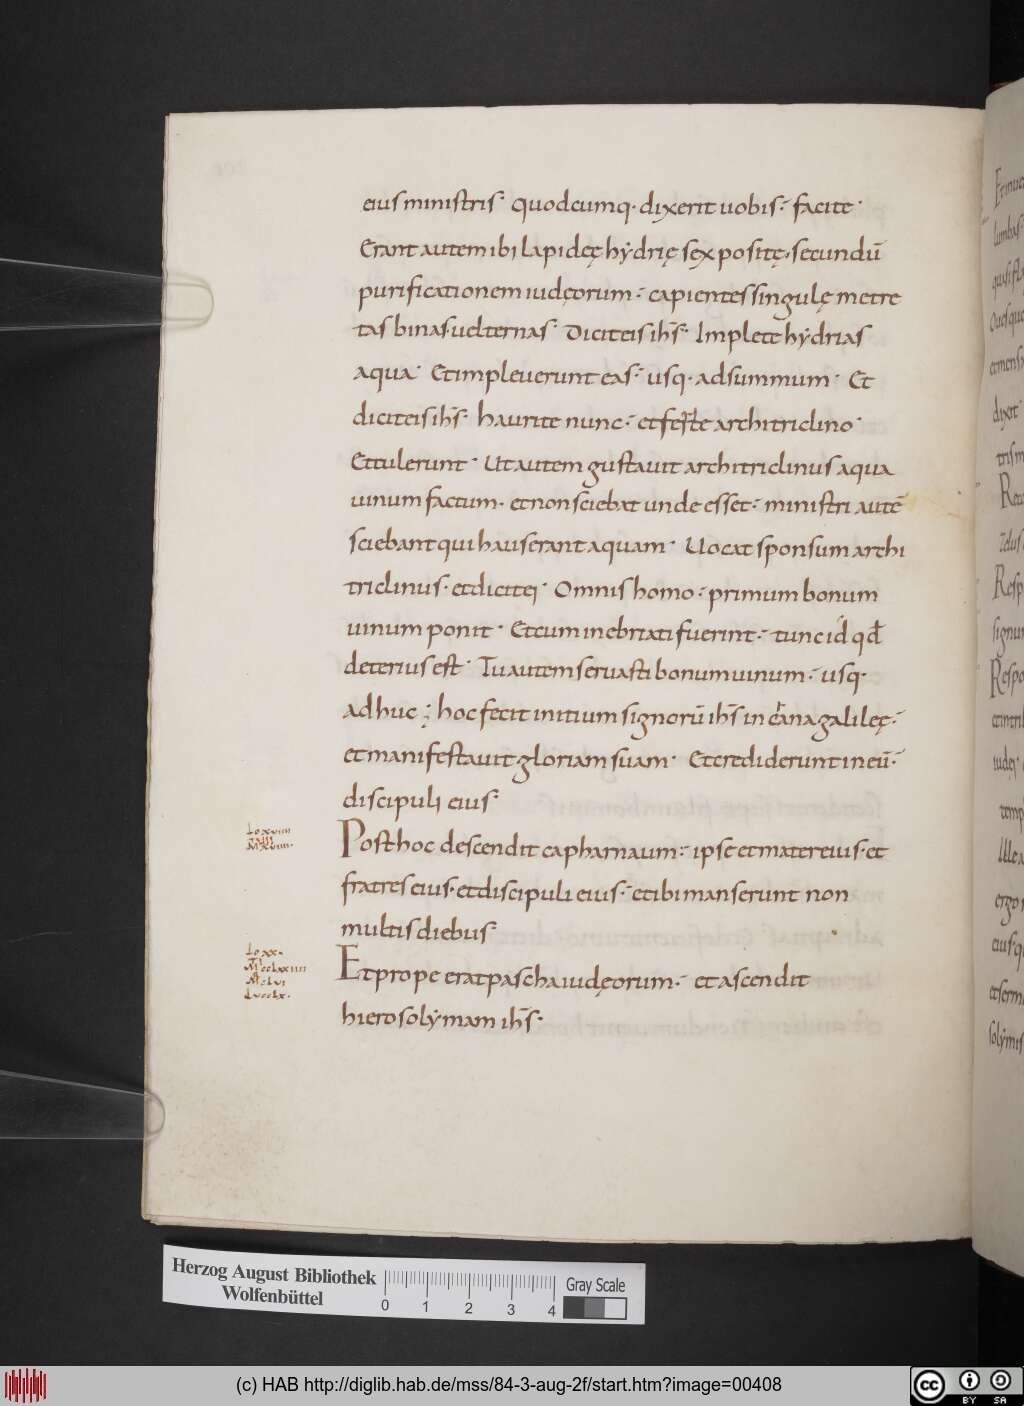 eius ministris· quodcumq· dixerit uobis· facite·
Erant autem ibi lapideę hydrię sex positę· secundū
purificationem iudęorum· capientes singulę metre
tas binas uel ternas· Dicit eis ih̅s· Implete hydrias
aqua· Et impleuerunt eas· usq· ad summum· Et
dicit eis ih̅s· haurite nunc· et ferte architriclino·
Et tulerunt· Ut autem gustauit architriclinus aqua
uinum factum· et non sciebat unde esset· ministri autē
sciebant qui hauserant aquam· Uocat sponsum archi
triclinus· et dicit ei· Omnis homo· primum bonum
uinum ponit· Et cum inebriati fuerint· tunc id qd̅
deterius est· Tu autem seruasti bonum uinum· usq·
adhuc; hoc fecit initium signorū ih̅s in cana galileę·
et manifestauit gloriam suam· Et crediderunt in eū·
discipuli eius·
Post hoc descendit capharnaum· ipse et mater eius· et
fratres eius· et discipuli eius· et ibi manserunt non
multis diebus·
Et prope erat pascha iudęorum· et ascendit
hierosolymam ih̅s·
Herzog August Bibliothek
Wolfenbüttel
0 1 2 3 4
Gray Scale
(c) HAB http://diglib.hab.de/mss/84-3-aug-2f/start.htm?image=00408
cc BY SA